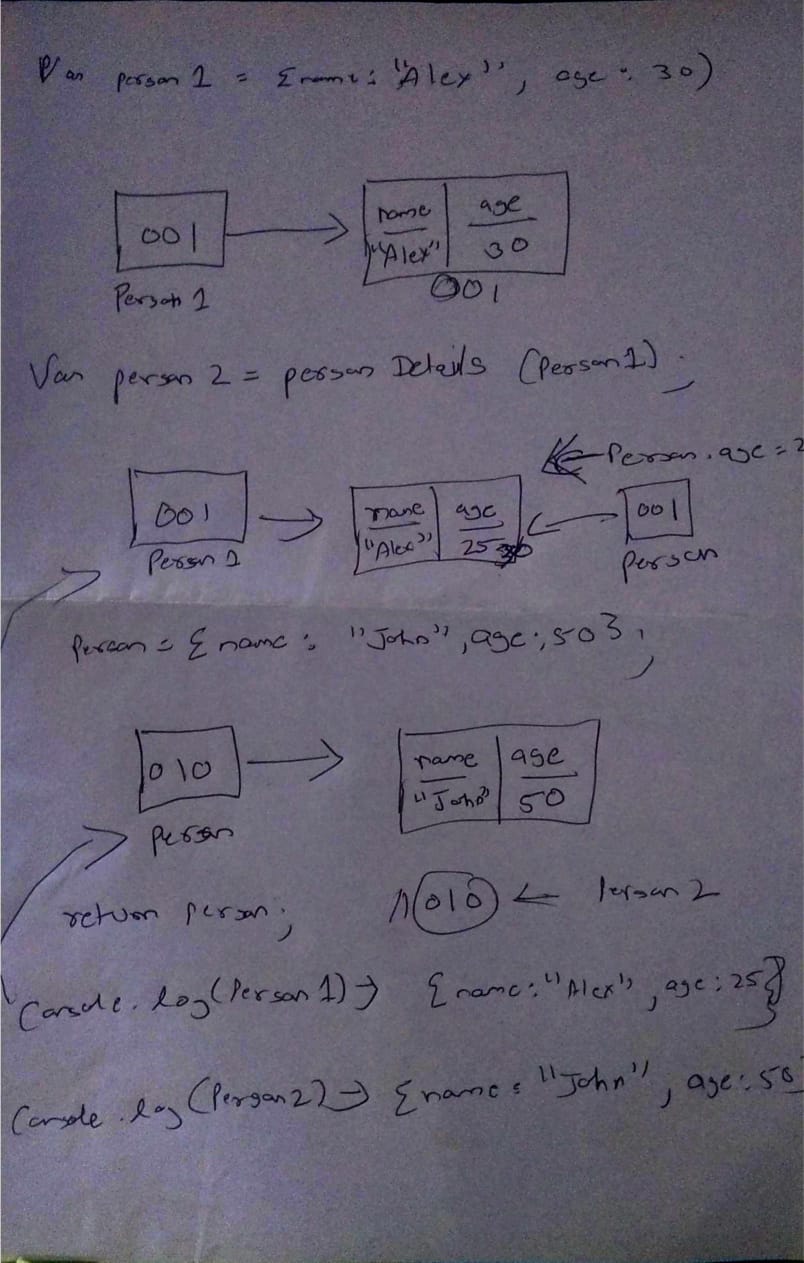 Var person 1 = {name: "Alex", age: 30}
001
name age
"Alex" 30
Person 1
001
Var person 2 = person Details (Person1);
Person.age = 2
001
name age
001
"Alex" 25
Person 1
person
Person = {name: "John", age: 50};
010
name age
"John" 50
person
return person;
010 ← Person 2
Console.log(Person 1) → {name: "Alex", age: 25}
Console.log(Person 2) → {name: "John", age: 50